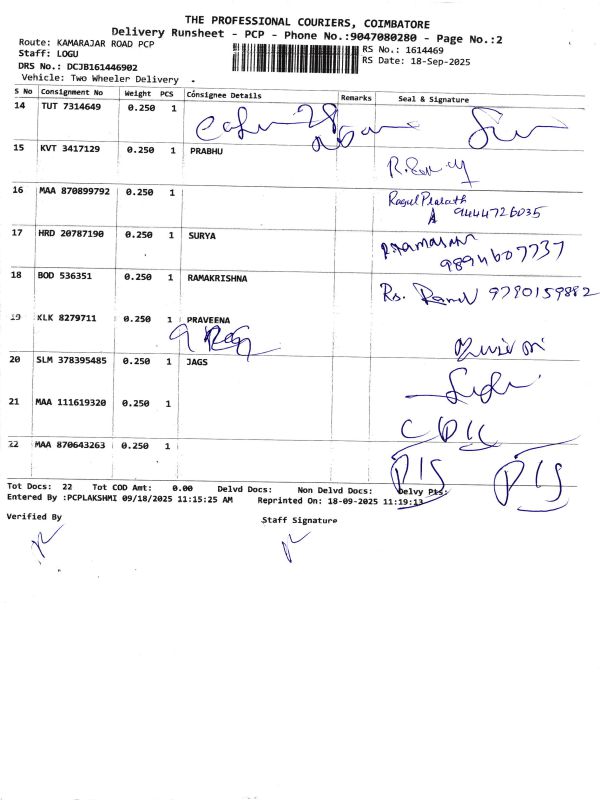 THE PROFESSIONAL COURIERS, COIMBATORE
Delivery Runsheet - PCP - Phone No.:9047080280 - Page No.:2
Route: KAMARAJAR ROAD PCP
RS No.: 1614469
Staff: LOGU
RS Date: 18-Sep-2025
DRS No.: DCJB161446902
Vehicle: Two Wheeler Delivery
S No Consignment No Weight PCS Consignee Details Remarks Seal & Signature
14 TUT 7314649 0.250 1
15 KVT 3417129 0.250 1 PRABHU
16 MAA 870899792 0.250 1
9444726035
17 HRD 20787190 0.250 1 SURYA
9894607737
18 BOD 536351 0.250 1 RAMAKRISHNA Rs. 9790159882
19 KLK 8279711 0.250 1 PRAVEENA
20 SLM 378395485 0.250 1 JAGS
21 MAA 111619320 0.250 1
22 MAA 870643263 0.250 1
Tot Docs: 22 Tot COD Amt: 0.00 Delvd Docs: Non Delvd Docs: Delvy Pts:
Entered By :PCPLAKSHMI 09/18/2025 11:15:25 AM Reprinted On: 18-09-2025 11:19:13
Verified By
Staff Signature